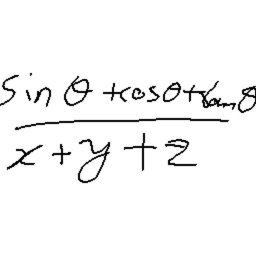 sin θ + cos θ + tan θ
x + y + z